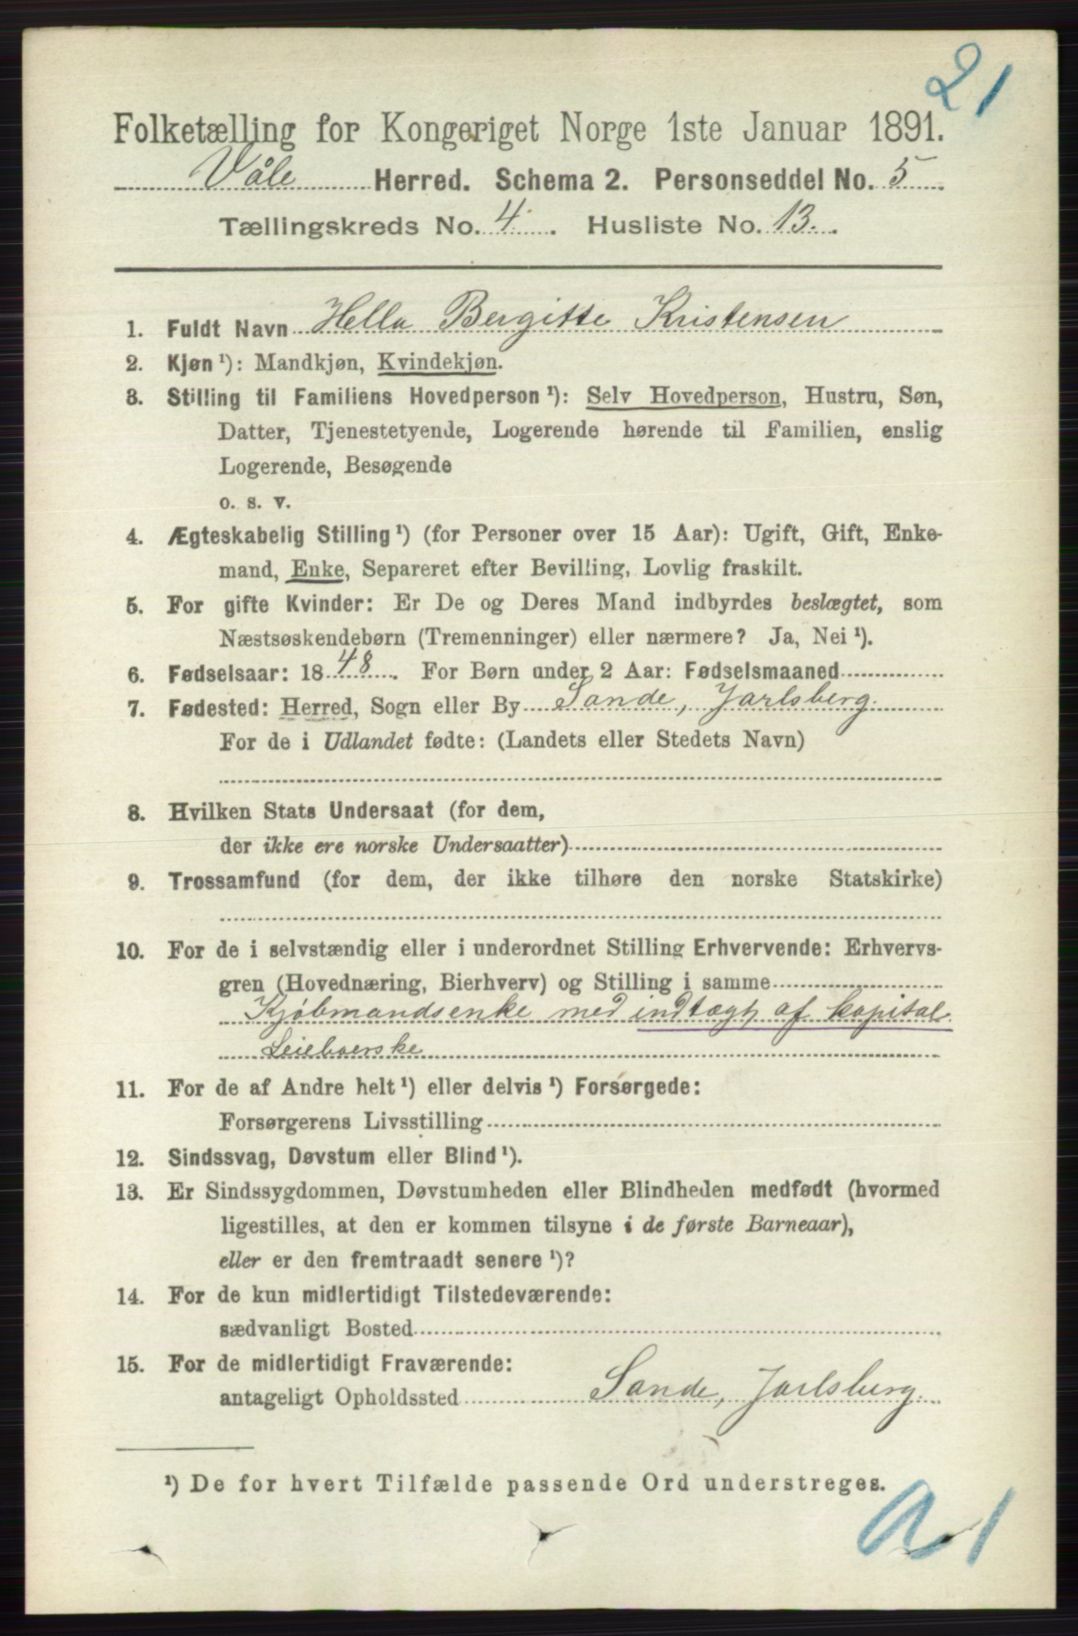 21
Folketælling for Kongeriget Norge 1ste Januar 1891.
Våle Herred. Schema 2. Personseddel No. 5
Tællingskreds No. 4. Husliste No. 13.
1. Fuldt Navn Hella Bergitte Kristensen
2. Kjøn ¹): Mandkjøn, Kvindekjøn.
3. Stilling til Familiens Hovedperson ¹): Selv Hovedperson, Hustru, Søn,
Datter, Tjenestetyende, Logerende hørende til Familien, enslig
Logerende, Besøgende
o. s. v.
4. Ægteskabelig Stilling ¹) (for Personer over 15 Aar): Ugift, Gift, Enke-
mand, Enke, Separeret efter Bevilling, Lovlig fraskilt.
5. For gifte Kvinder: Er De og Deres Mand indbyrdes beslægtet, som
Næstsøskendebørn (Tremenninger) eller nærmere? Ja, Nei ¹).
6. Fødselsaar: 1848. For Børn under 2 Aar: Fødselsmaaned
7. Fødested: Herred, Sogn eller By Sande, Jarlsberg.
For de i Udlandet fødte: (Landets eller Stedets Navn)
8. Hvilken Stats Undersaat (for dem,
der ikke ere norske Undersaatter)
9. Trossamfund (for dem, der ikke tilhøre den norske Statskirke)
10. For de i selvstændig eller i underordnet Stilling Erhvervende: Erhvervs-
gren (Hovednæring, Bierhverv) og Stilling i samme
Kjøbmandsenke med indtægt af kapital.
Leieboerske
11. For de af Andre helt ¹) eller delvis ¹) Forsørgede:
Forsørgerens Livsstilling
12. Sindssvag, Døvstum eller Blind ¹).
13. Er Sindssygdommen, Døvstumheden eller Blindheden medfødt (hvormed
ligestilles, at den er kommen tilsyne i de første Barneaar),
eller er den fremtraadt senere ¹)?
14. For de kun midlertidigt Tilstedeværende:
sædvanligt Bosted
15. For de midlertidigt Fraværende:
antageligt Opholdssted Sande, Jarlsberg.
¹) De for hvert Tilfælde passende Ord understreges.